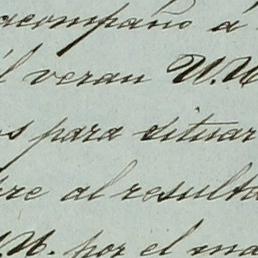 acompaño á
él veran U.U
s para situar
bre al resulta
U.U. por el ma